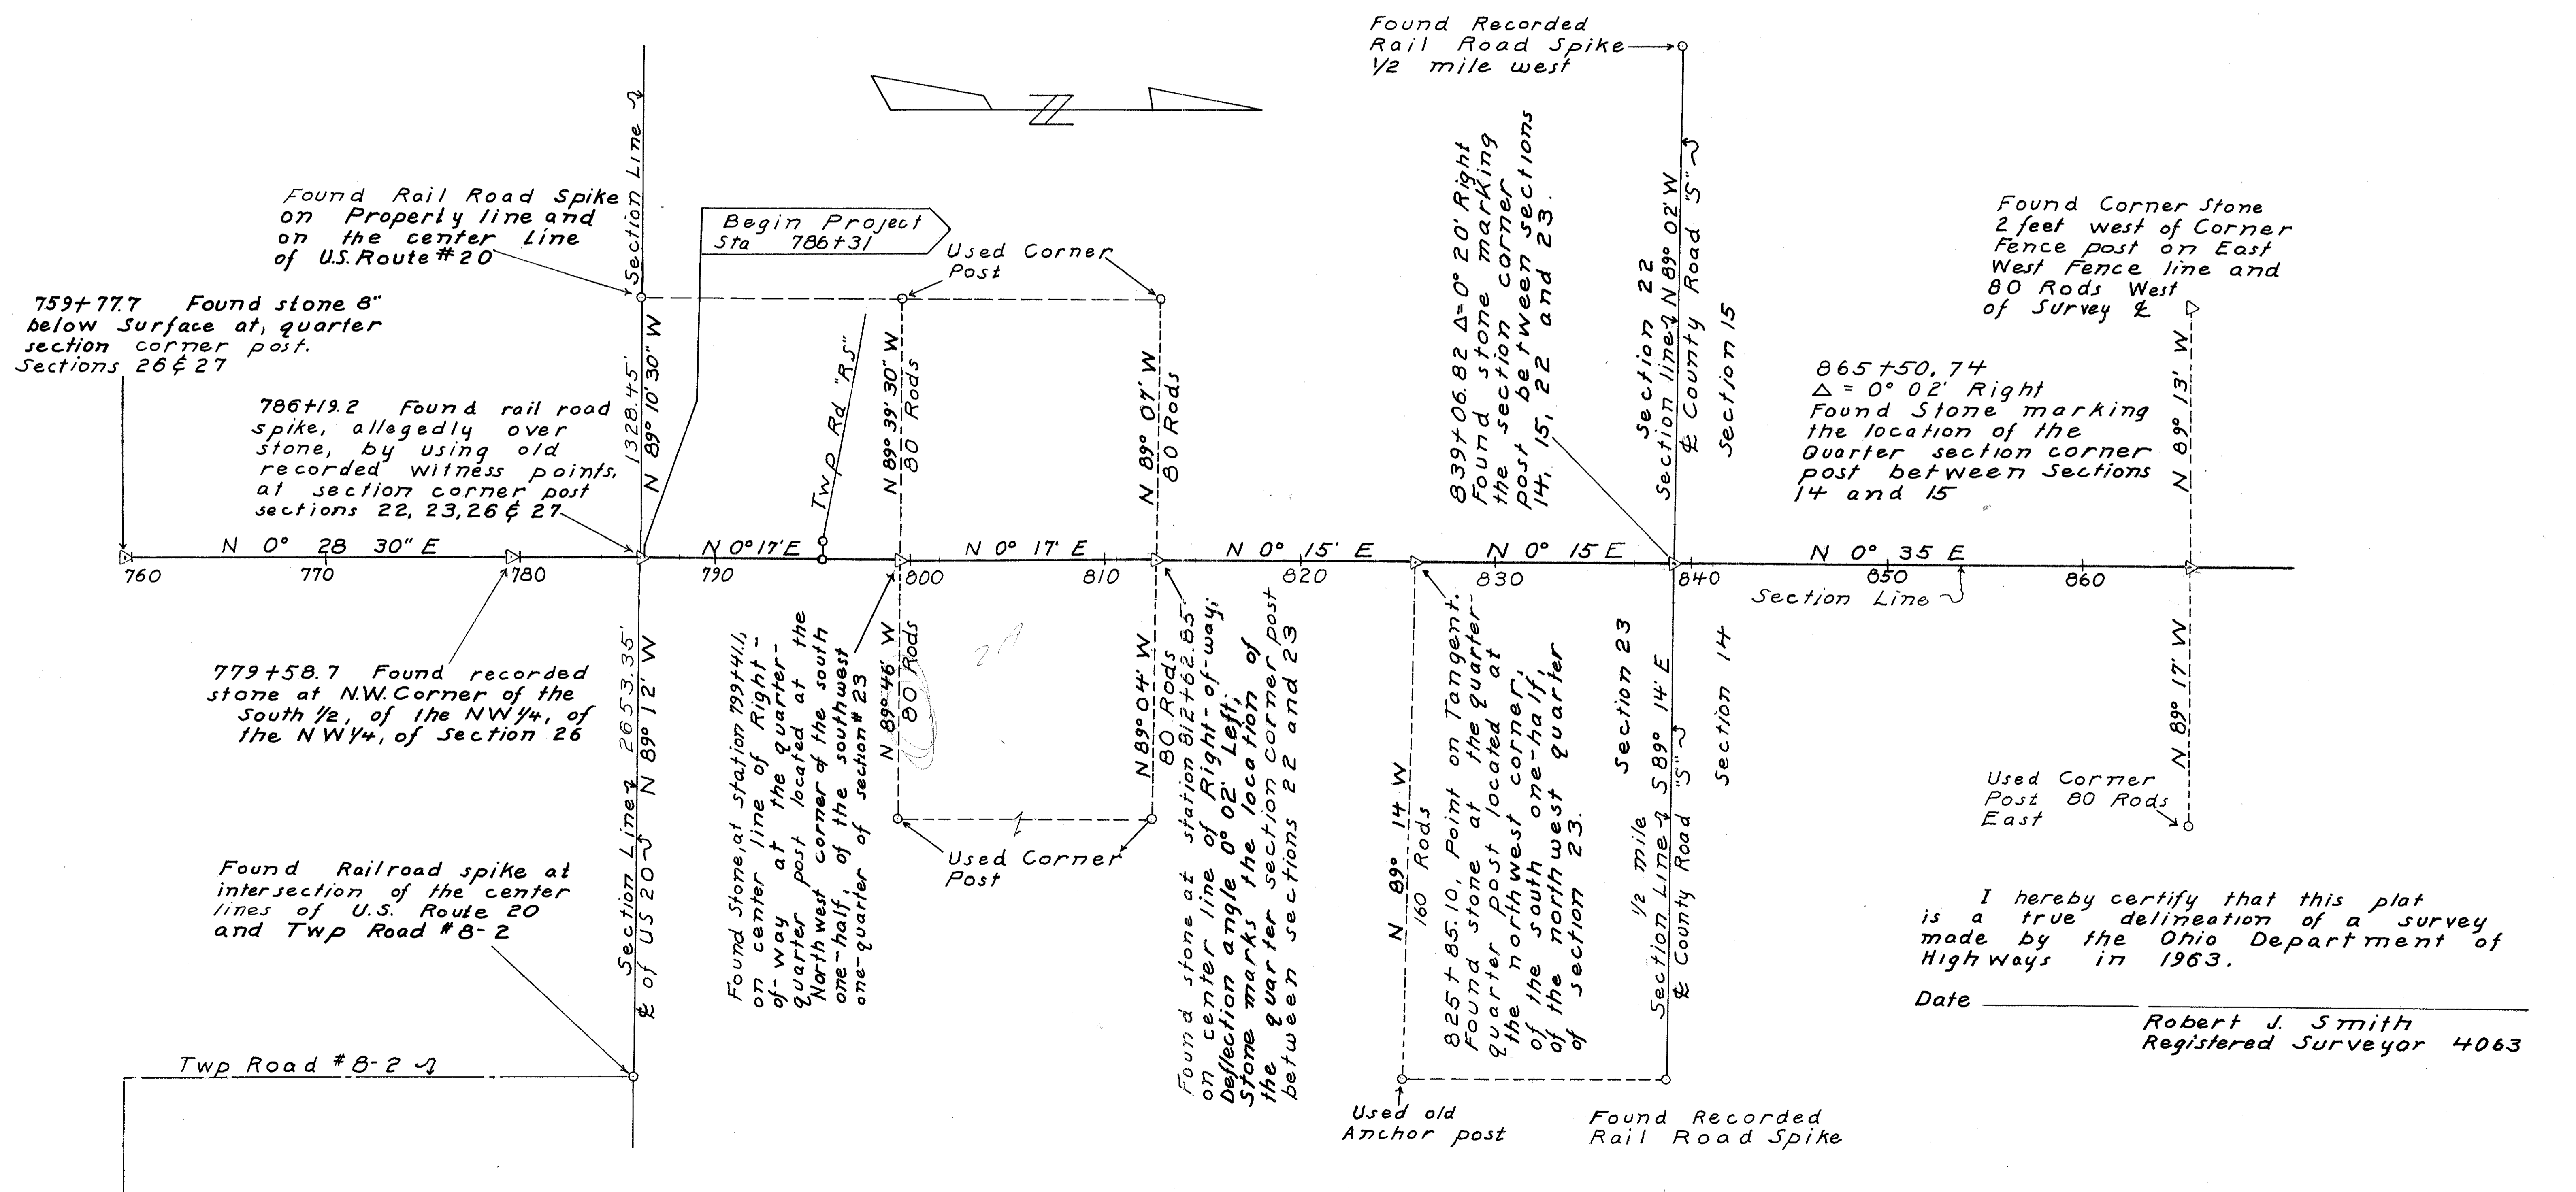 Found Recorded
Rail Road Spike
1/2 mile west
Found Rail Road Spike
on Properly line and
on the center Line
of U.S. Route #20
Section Line
Begin Project
Sta 786+31
Used Corner
Post
759+77.7 Found stone 8"
below Surface at, quarter
section corner post.
Sections 26 & 27
786+19.2 Found rail road
spike, allegedly over
stone, by using old
recorded witness points,
at section corner post
sections 22, 23, 26 & 27
1328.45'
N 89° 10' 30" W
Twp Rd "R5"
N 89° 39' 30" W
80 Rods
N 89° 07' W
80 Rods
839+06.82 Δ=0° 20' Right
Found stone marking
the section corner
post between sections
14, 15, 22 and 23.
Section 22
Section line N 89° 02' W
℄ County Road "S"
Section 15
Found Corner Stone
2 feet west of Corner
Fence post on East
West Fence line and
80 Rods West
of Survey ℄
865+50.74
Δ = 0° 02' Right
Found Stone marking
the location of the
Quarter section corner
post between Sections
14 and 15
N 89° 13' W
N 0° 28 30" E
N 0° 17' E
N 0° 17' E
N 0° 15' E
N 0° 15 E
N 0° 35 E
760
770
780
790
800
810
820
830
840
850
860
Section Line
779+58.7 Found recorded
stone at N.W. Corner of the
South 1/2, of the NW 1/4, of
the NW 1/4, of Section 26
Section Line 2653.35'
℄ of US 20
N 89° 12' W
Found Stone, at station 799+41.1,
on center line of Right-
of-way at the quarter-
quarter post located at the
Northwest corner of the south
one-half, of the southwest
one-quarter of section #23
N 89° 46' W
80 Rods
2A
N 89° 04' W
80 Rods
Found stone at station 812+62.85
on center line of Right-of-way;
Deflection angle 0° 02' Left;
Stone marks the location of
the quarter section corner post
between sections 22 and 23
N 89° 14 W
160 Rods
825+85.10, Point on Tangent.
Found stone at the quarter-
quarter post located at
the northwest corner,
of the south one-half,
of the northwest quarter
of section 23.
Section 23
1/2 mile
Section Line S 89° 14' E
℄ County Road "S"
Section 14
N 89° 17' W
Used Corner
Post 80 Rods
East
Found Railroad spike at
intersection of the center
lines of U.S. Route 20
and Twp Road #8-2
Used Corner
Post
Twp Road #8-2
Used old
Anchor post
Found Recorded
Rail Road Spike
I hereby certify that this plat
is a true delineation of a survey
made by the Ohio Department of
Highways in 1963.
Date
Robert J. Smith
Registered Surveyor 4063